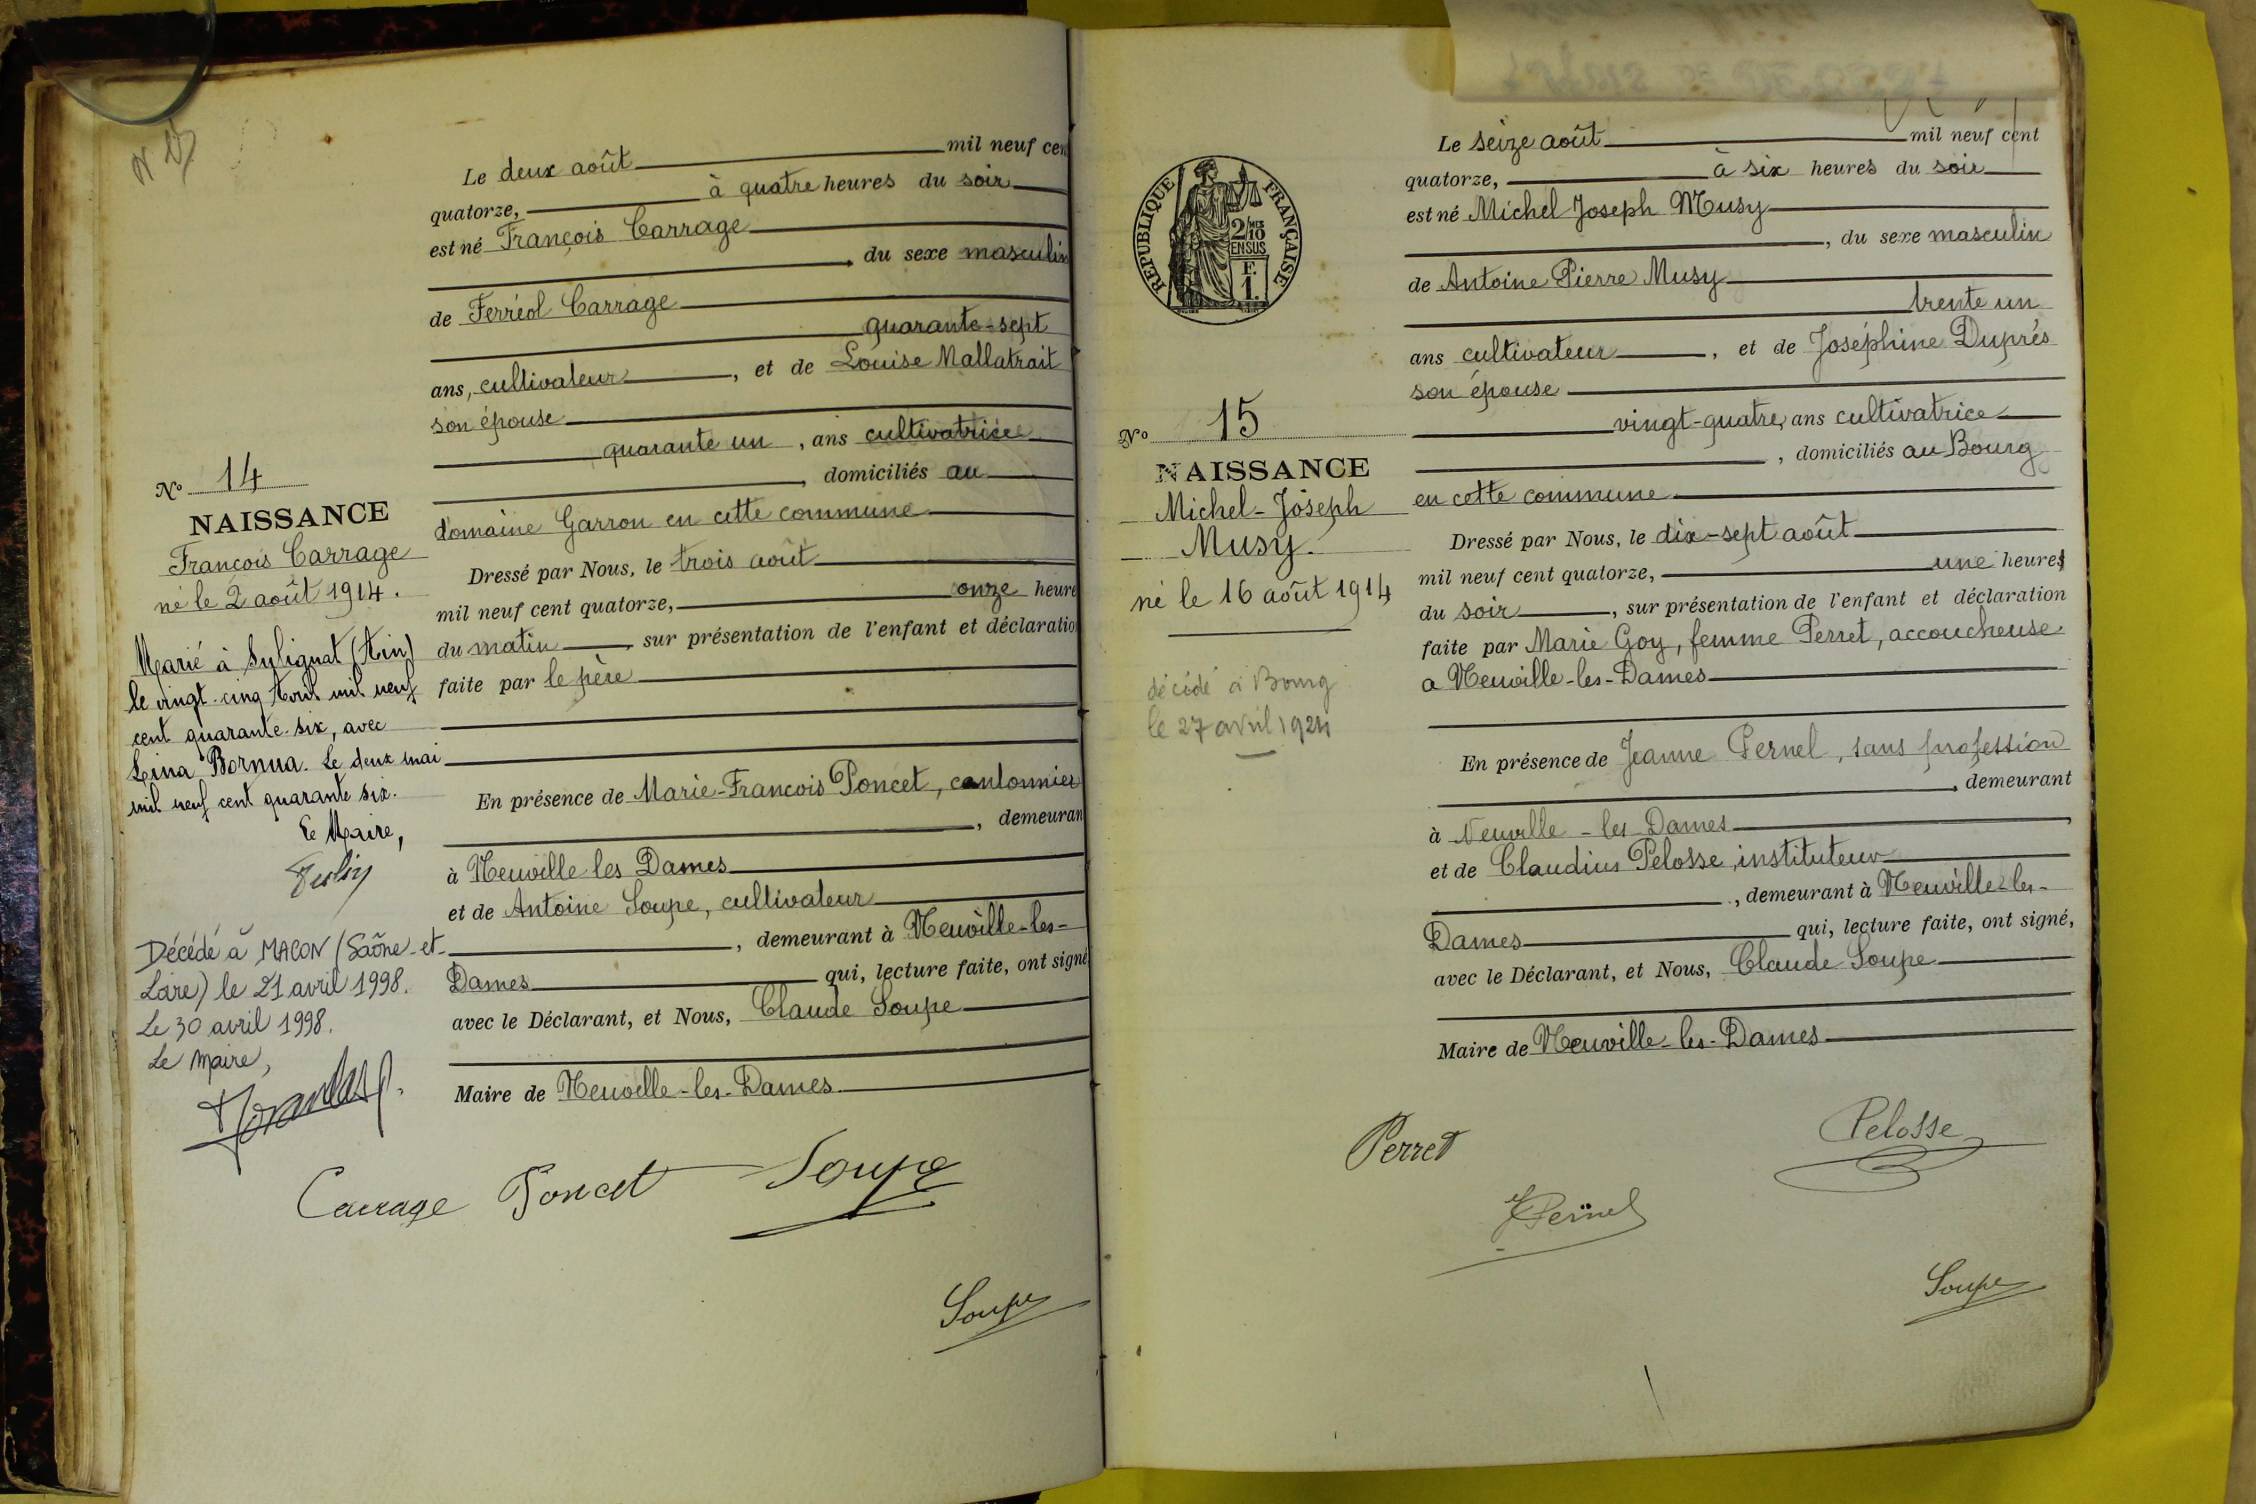 Le deux août mil neuf cen
quatorze, à quatre heures du soir
est né François Carrage
, du sexe masculin
de Ferréol Carrage
quarante-sept
ans, cultivateur, et de Louise Mallatrait
son épouse
quarante un, ans cultivatrice
, domiciliés au
domaine Garron en cette commune
Dressé par Nous, le trois août
mil neuf cent quatorze, onze heure
du matin, sur présentation de l'enfant et déclaratio
faite par le père
En présence de Marie-François Poncet, cantonnier
, demeuran
à Neuville les Dames
et de Antoine Soupe, cultivateur
, demeurant à Neuville-les-
Dames qui, lecture faite, ont signé
avec le Déclarant, et Nous, Claude Soupe
Maire de Neuville-les-Dames
Carrage Poncet Soupe
Soupe
No 14
NAISSANCE
François Carrage
né le 2 août 1914.
Marié à Sulignat (Ain)
le vingt-cinq Avril mil neuf
cent quarante-six, avec
Lina Bornua. Le deux mai
mil neuf cent quarante six.
Le Maire,
Décédé à MACON (Saône-et-
Loire) le 21 avril 1998.
Le 30 avril 1998.
Le Maire,
REPUBLIQUE FRANÇAISE
2/10
EN SUS
F.
1.
No 15
NAISSANCE
Michel-Joseph
Musy.
né le 16 août 1914
décédé à Bourg
le 27 avril 1924
Le seize août mil neuf cent
quatorze, à six heures du soir
est né Michel Joseph Musy
, du sexe masculin
de Antoine Pierre Musy
trente un
ans cultivateur, et de Joséphine Duprés
son épouse
vingt-quatre, ans cultivatrice
, domiciliés au Bourg
en cette commune
Dressé par Nous, le dix-sept août
mil neuf cent quatorze, une heures
du soir, sur présentation de l'enfant et déclaration
faite par Marie Goy, femme Perret, accoucheuse
a Neuville-les-Dames
En présence de Jeanne Pernel, sans profession
, demeurant
à Neuville-les-Dames
et de Claudius Pelosse, instituteur
, demeurant à Neuville-les-
Dames qui, lecture faite, ont signé,
avec le Déclarant, et Nous, Claude Soupe
Maire de Neuville-les-Dames
Perret Pelosse
J Pernel
Soupe